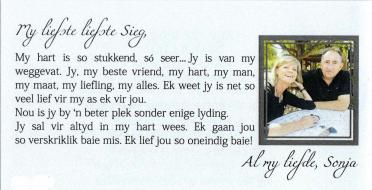 My liefste liefste Sieg,
My hart is so stukkend, só seer... Jy is van my
weggevat. Jy, my beste vriend, my hart, my man,
my maat, my liefling, my alles. Ek weet jy is net so
veel lief vir my as ek vir jou.
Nou is jy by ‘n beter plek sonder enige lyding.
Jy sal vir altyd in my hart wees. Ek gaan jou
so verskriklik baie mis. Ek lief jou so oneindig baie!
Al my liefde, Sonja